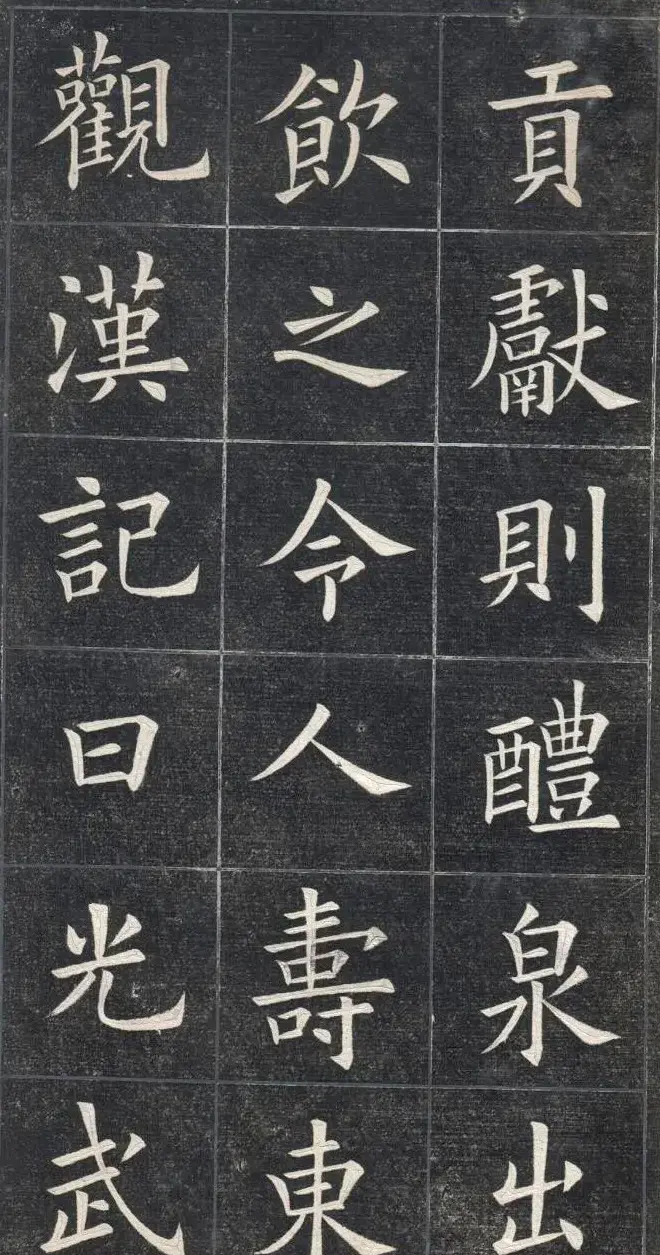 貢獻則醴泉出
飲之令人壽東
觀漢記曰光武